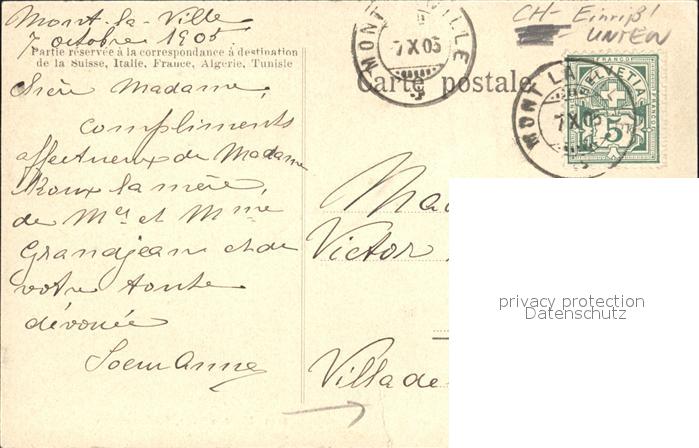 Mont-la-Ville
7 octobre 1905
Partie réservée à la correspondance à destination
de la Suisse, Italie, France, Algérie, Tunisie
Carte postale
MONT LA VILLE
7 X 05
CH- Einriß!
UNTEN
FRANCO
HELVETIA
5
MONT LA
7 X 05
Chère Madame,
Compliments
affectueux de Madame
Roux la mère,
de Mr et Mme
Grandjean et de
votre toute
dévouée
Soeur Anne
Mad
Victor
Villa de
privacy protection
Datenschutz